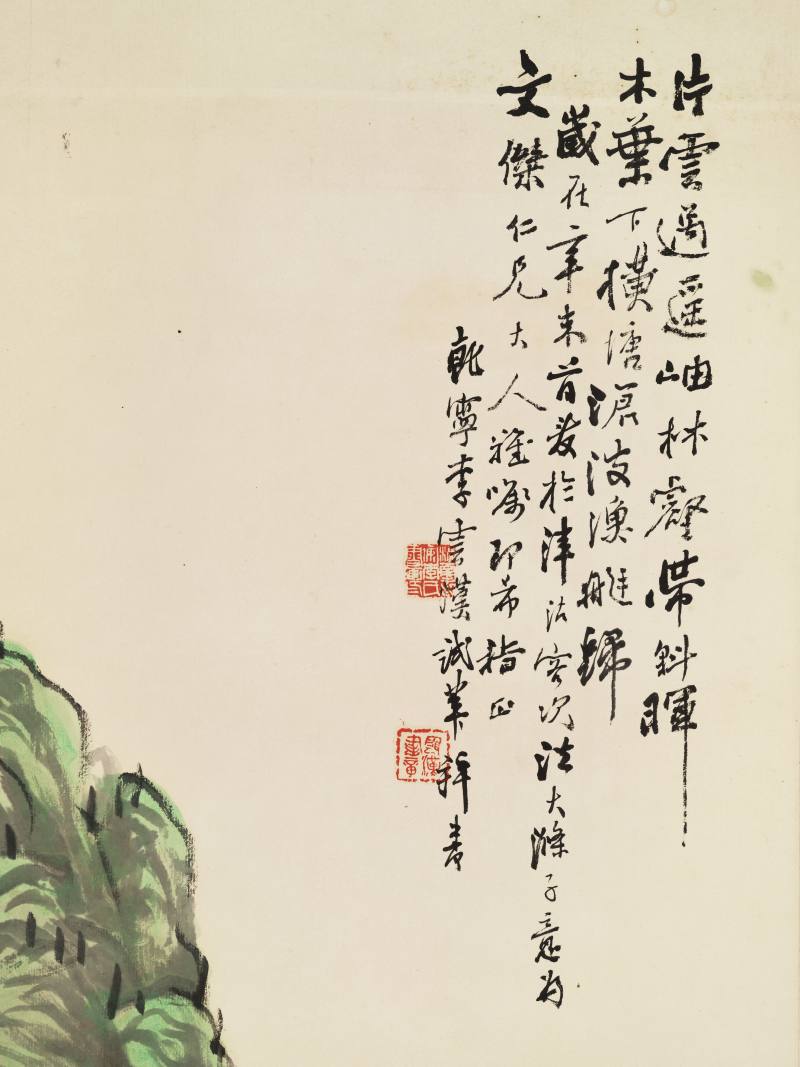 片雲過遥岫林壑帶斜暉
木葉下横塘滄波漁艇歸
歲在辛未首夏於津沽客次法大滌子意為
文傑仁兄大人雅嘱即希指正
乾寧李雲漢誠華拜書